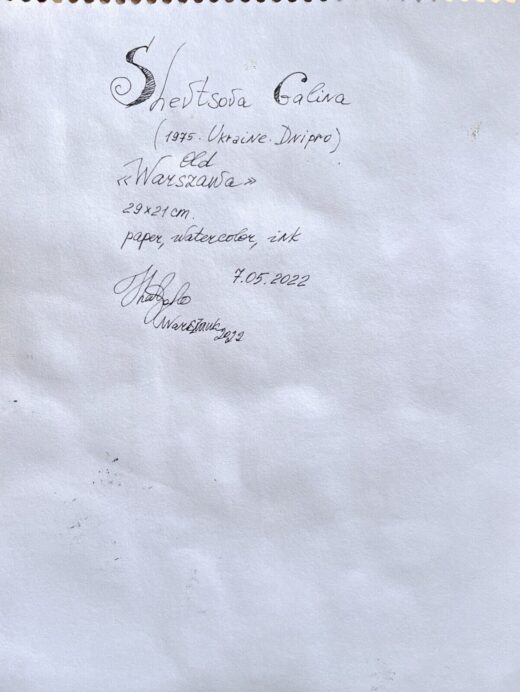 Shevtsova Galina
(1975. Ukraine. Dnipro)
Old
«Warszawa»
29x21 cm.
paper, watercolor, ink
7.05.2022
2022